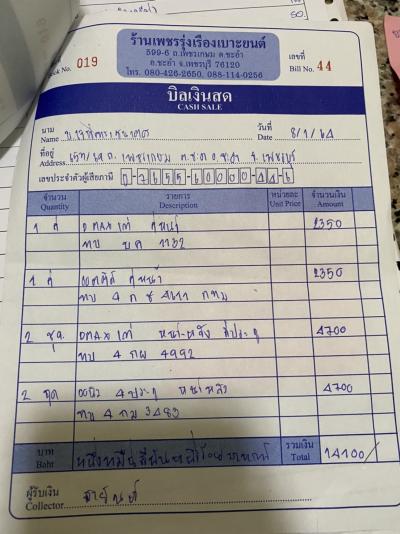 50.
ร้านเพชรรุ่งเรืองเบาะยนต์
599-6 ถ.เพชรเกษม ต.ชะอำ
อ.ชะอำ จ.เพชรบุรี 76120
โทร. 080-426-2650, 088-114-0256
No. 019
เลขที่
Bill No. 44
บิลเงินสด
CASH SALE
นาม
Name
วันที่
Date 8/1/64
ที่อยู่
Address ถ. เพชรเกษม ต.ชะอำ อ.ชะอำ จ.เพชรบุรี
เลขประจำตัวผู้เสียภาษี
จำนวน Quantity รายการ Description หน่วยละ Unit Price จำนวนเงิน Amount
1 คู่ DMAX เก่า คู่หน้า 2350
ทบ 1132
1 คู่ คู่หน้า 2350
ทบ 4 กทม
2 ชุด DMAX เก่า หน้า-หลัง 4 ประตู 4700
ทบ 4 กผ 4992
2 ชุด 4 ประตู หน้า หลัง 4700
ทบ 4 กม 3483
บาท
Baht หนึ่งหมื่นสี่พันหนึ่งร้อยบาทถ้วน รวมเงิน Total 14100/
ผู้รับเงิน
Collector